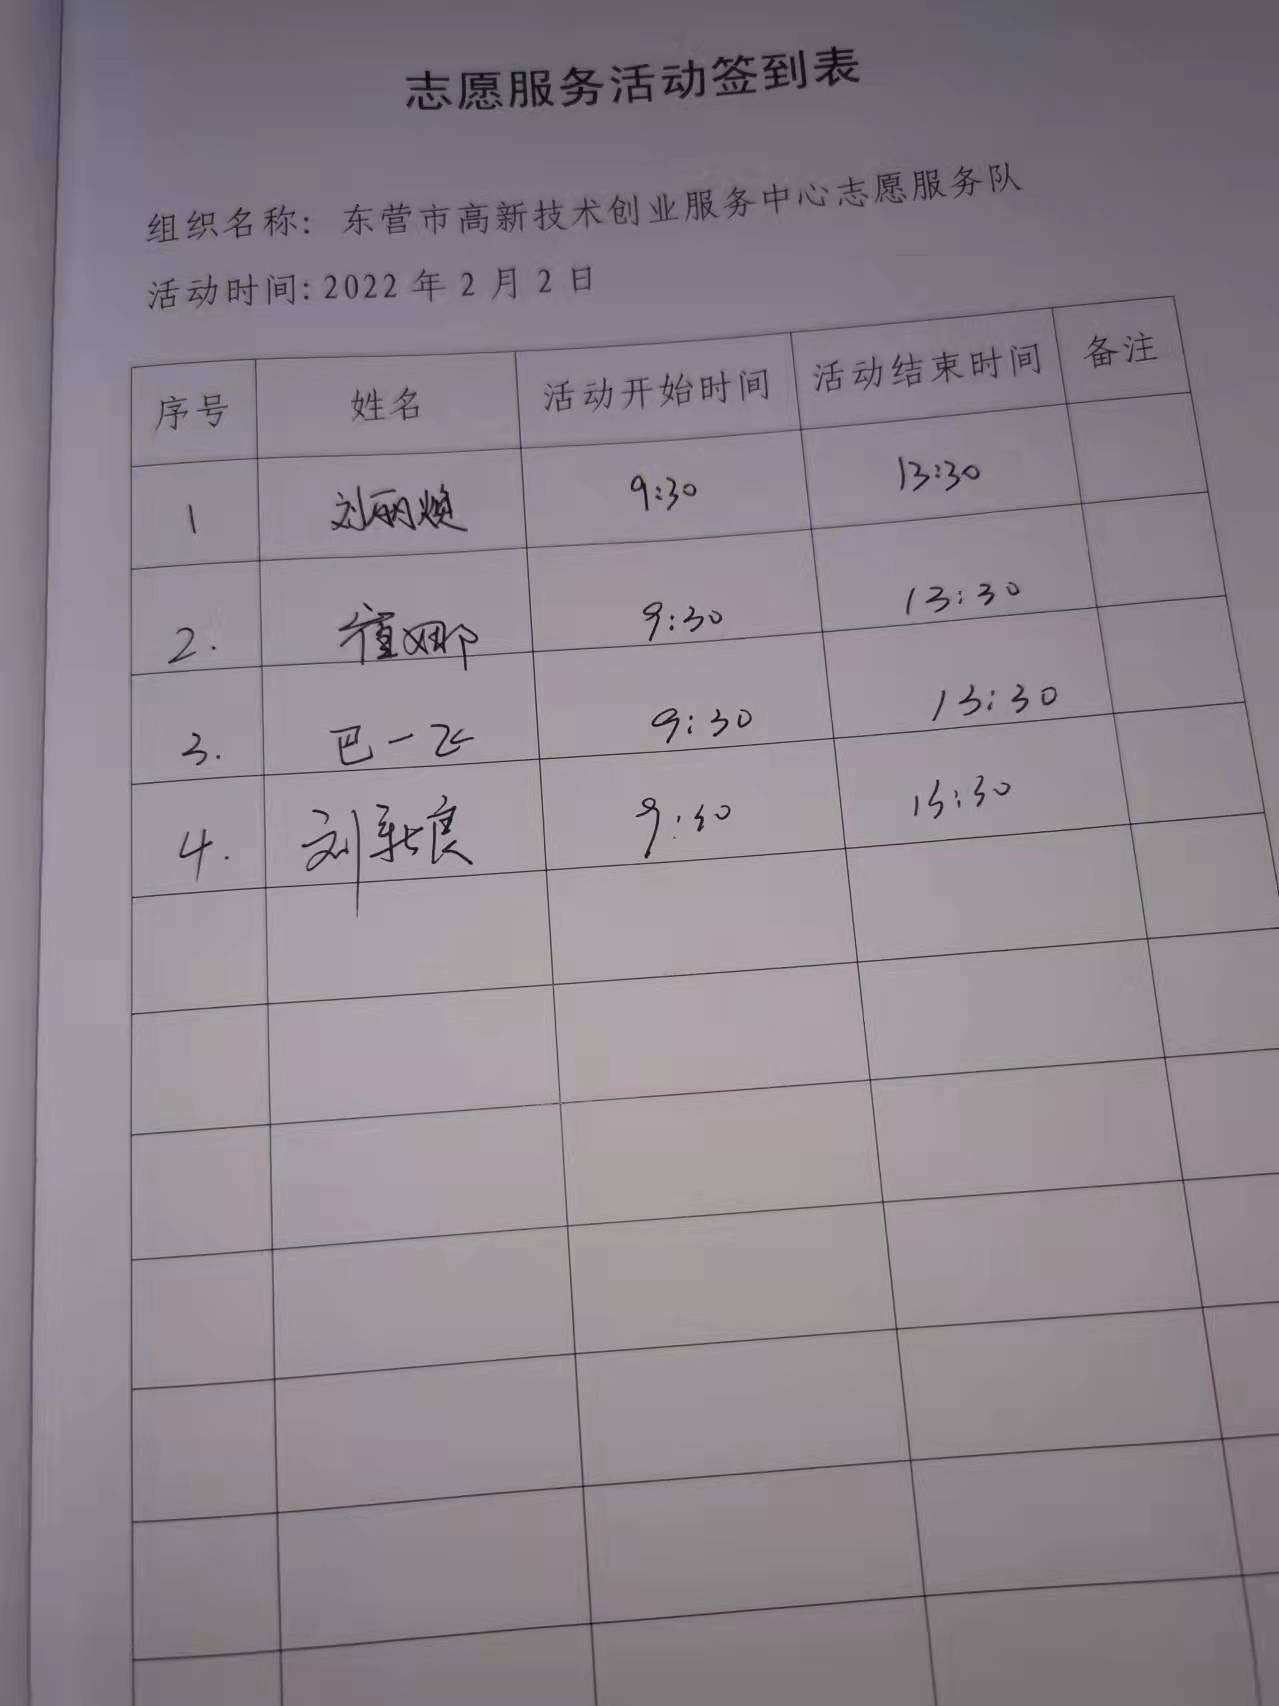 志愿服务活动签到表
组织名称: 东营市高新技术创业服务中心志愿服务队
活动时间: 2022 年 2 月 2 日
序号 姓名 活动开始时间 活动结束时间 备注
1 刘丽焕 9:30 13:30
2. 崔娜 9:30 13:30
3. 巴一飞 9:30 13:30
4. 刘新良 9:30 13:30